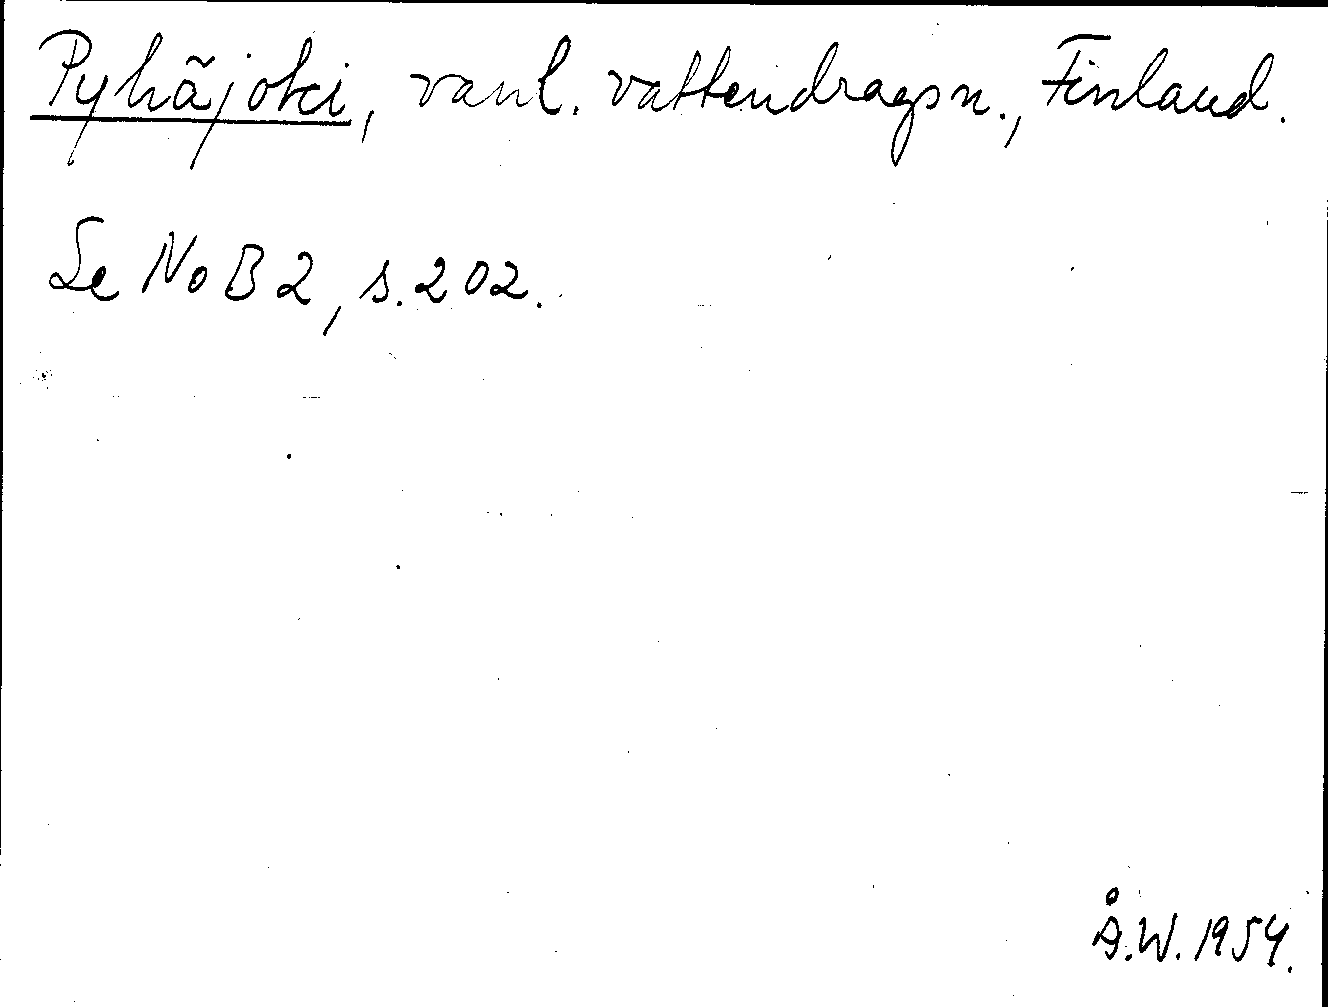 Pyhäjoki, vanl. vattendragsn., Finland.
Se NoB 2, s. 202.
Å.W. 1954.